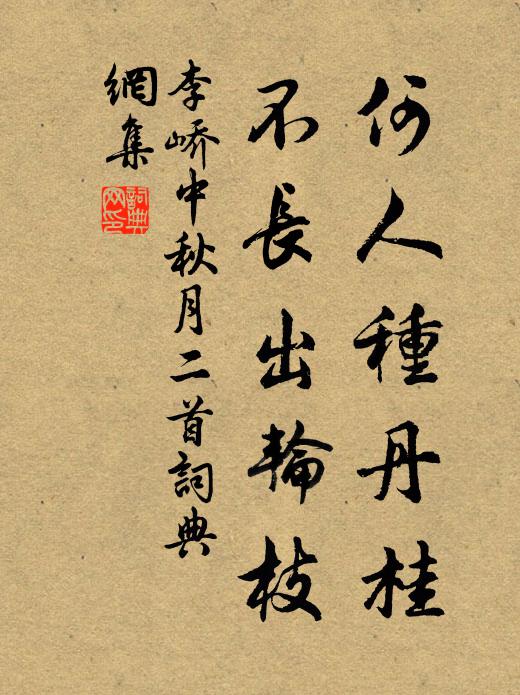 何人種丹桂
不長出輪枝
李嶠中秋月二首詞典
網集
詞典網印